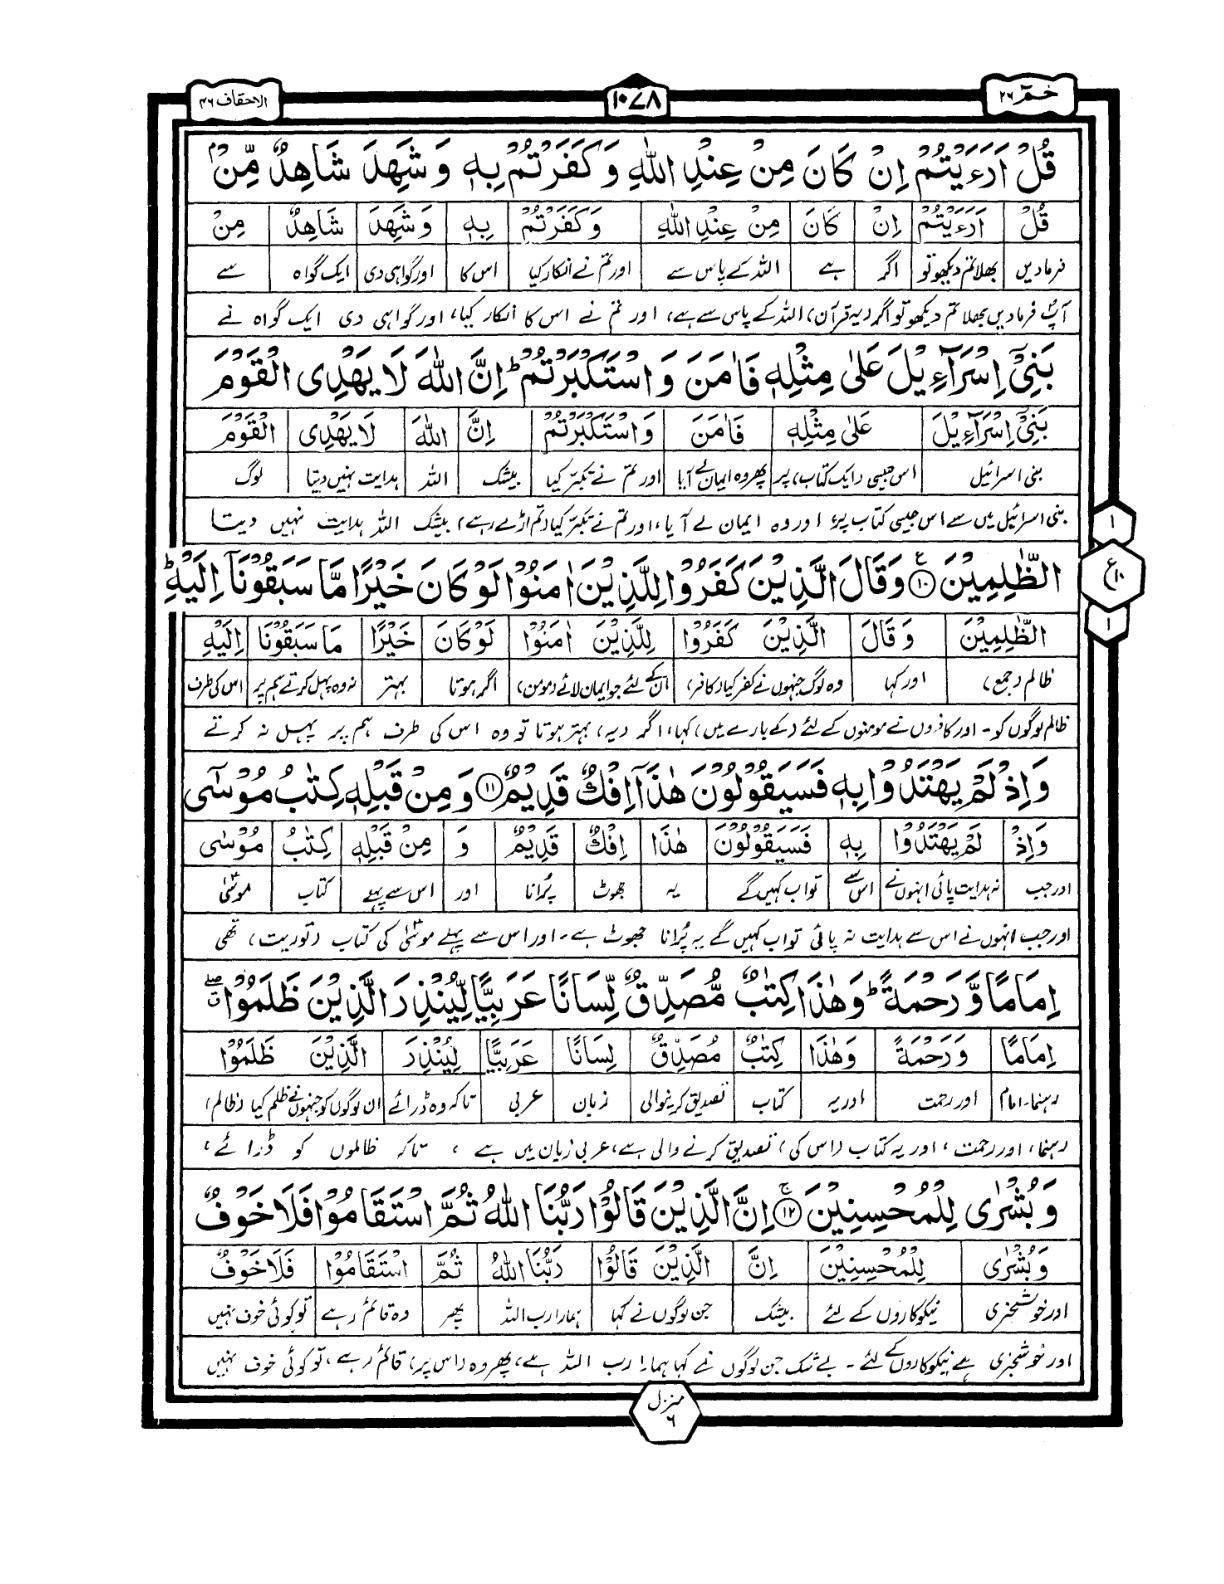 خمٓ ۲۶
۱۰۷۸
الاحقاف ۴۶
قُلْ اَرَءَيْتُمْ اِنْ كَانَ مِنْ عِنْدِ اللّٰهِ وَكَفَرْتُمْ بِهٖ وَشَهِدَ شَاهِدٌ مِّنْۢ
قُلْ اَرَءَيْتُمْ اِنْ كَانَ مِنْ عِنْدِ اللّٰهِ وَكَفَرْتُمْ بِهٖ وَشَهِدَ شَاهِدٌ مِنْ
فرمادیں بھلا تم دیکھو تو اگر ہے اللہ کے پاس سے اور تم نے انکار کیا اس کا اور گواہی دی ایک گواہ سے
آپؐ فرمادیں بھلا تم دیکھو تو اگر (یہ قرآن) اللہ کے پاس سے ہے، اور تم نے اس کا انکار کیا، اور گواہی دی ایک گواہ نے
بَنِيْٓ اِسْرَآءِيْلَ عَلٰى مِثْلِهٖ فَاٰمَنَ وَاسْتَكْبَرْتُمْ ؕ اِنَّ اللّٰهَ لَا يَهْدِى الْقَوْمَ
بَنِيْٓ اِسْرَآءِيْلَ عَلٰى مِثْلِهٖ فَاٰمَنَ وَاسْتَكْبَرْتُمْ اِنَّ اللّٰهَ لَا يَهْدِى الْقَوْمَ
بنی اسرائیل اس جیسی (ایک کتاب) پر پھر وہ ایمان لے آیا اور تم نے تکبر کیا بیشک اللہ ہدایت نہیں دیتا لوگ
بنی اسرائیل میں سے اس جیسی کتاب پر، اور وہ ایمان لے آیا، اور تم نے تکبر کیا (تم اڑے رہے) بیشک اللہ ہدایت نہیں دیتا
۱
الظّٰلِمِيْنَ ۱۰ ع وَقَالَ الَّذِيْنَ كَفَرُوْا لِلَّذِيْنَ اٰمَنُوْا لَوْ كَانَ خَيْرًا مَّا سَبَقُوْنَآ اِلَيْهِ ؕ
ع ۱۰
الظّٰلِمِيْنَ وَقَالَ الَّذِيْنَ كَفَرُوْا لِلَّذِيْنَ اٰمَنُوْا لَوْ كَانَ خَيْرًا مَا سَبَقُوْنَا اِلَيْهِ
۱
ظالم (جمع) اور کہا وہ لوگ جنہوں نے کفر کیا (کافر) ان کے لئے جو ایمان لائے (مومن) اگر ہوتا بہتر نہ وہ پہل کرتے ہم پر اس کی طرف
ظالم لوگوں کو۔ اور کافروں نے مومنوں کے لئے (کے بارے میں) کہا، اگر (یہ) بہتر ہوتا تو وہ اس کی طرف ہم پر پہل نہ کرتے
وَاِذْ لَمْ يَهْتَدُوْا بِهٖ فَسَيَقُوْلُوْنَ هٰذَآ اِفْكٌ قَدِيْمٌ ۱۱ وَمِنْ قَبْلِهٖ كِتٰبُ مُوْسٰٓى
وَاِذْ لَمْ يَهْتَدُوْا بِهٖ فَسَيَقُوْلُوْنَ هٰذَا اِفْكٌ قَدِيْمٌ وَ مِنْ قَبْلِهٖ كِتٰبُ مُوْسٰى
اور جب نہ ہدایت پائی انہوں نے اس سے تو اب کہیں گے یہ جھوٹ پُرانا اور اس سے پہلے کتاب موسیٰؑ
اور جب انہوں نے اس سے ہدایت نہ پائی تو اب کہیں گے یہ پُرانا جھوٹ ہے۔ اور اس سے پہلے موسیٰؑ کی کتاب (توریت) تھی
اِمَامًا وَّرَحْمَةً ؕ وَهٰذَا كِتٰبٌ مُّصَدِّقٌ لِّسَانًا عَرَبِيًّا لِّيُنْذِرَ الَّذِيْنَ ظَلَمُوْا ۖ
اِمَامًا وَرَحْمَةً وَهٰذَا كِتٰبٌ مُصَدِّقٌ لِسَانًا عَرَبِيًّا لِيُنْذِرَ الَّذِيْنَ ظَلَمُوْا
رہنما۔ امام اور رحمت اور یہ کتاب تصدیق کرنیوالی زبان عربی تاکہ وہ ڈرائے ان لوگوں کو جنہوں نے ظلم کیا (ظالم)
رہنما، اور رحمت، اور یہ کتاب (اس کی) تصدیق کرنے والی ہے، عربی زبان میں ہے، تاکہ ظالموں کو ڈرائے،
وَبُشْرٰى لِلْمُحْسِنِيْنَ ۱۲ ج اِنَّ الَّذِيْنَ قَالُوْا رَبُّنَا اللّٰهُ ثُمَّ اسْتَقَامُوْا فَلَا خَوْفٌ
وَبُشْرٰى لِلْمُحْسِنِيْنَ اِنَّ الَّذِيْنَ قَالُوْا رَبُّنَا اللّٰهُ ثُمَّ اسْتَقَامُوْا فَلَا خَوْفٌ
اور خوشخبری نیکوکاروں کے لئے بیشک جن لوگوں نے کہا ہمارا رب اللہ پھر وہ قائم رہے تو کوئی خوف نہیں
اور خوشخبری ہے نیکوکاروں کے لئے۔ بے شک جن لوگوں نے کہا ہمارا رب اللہ ہے، پھر وہ (اس پر) قائم رہے، تو کوئی خوف نہیں
منزل ۶